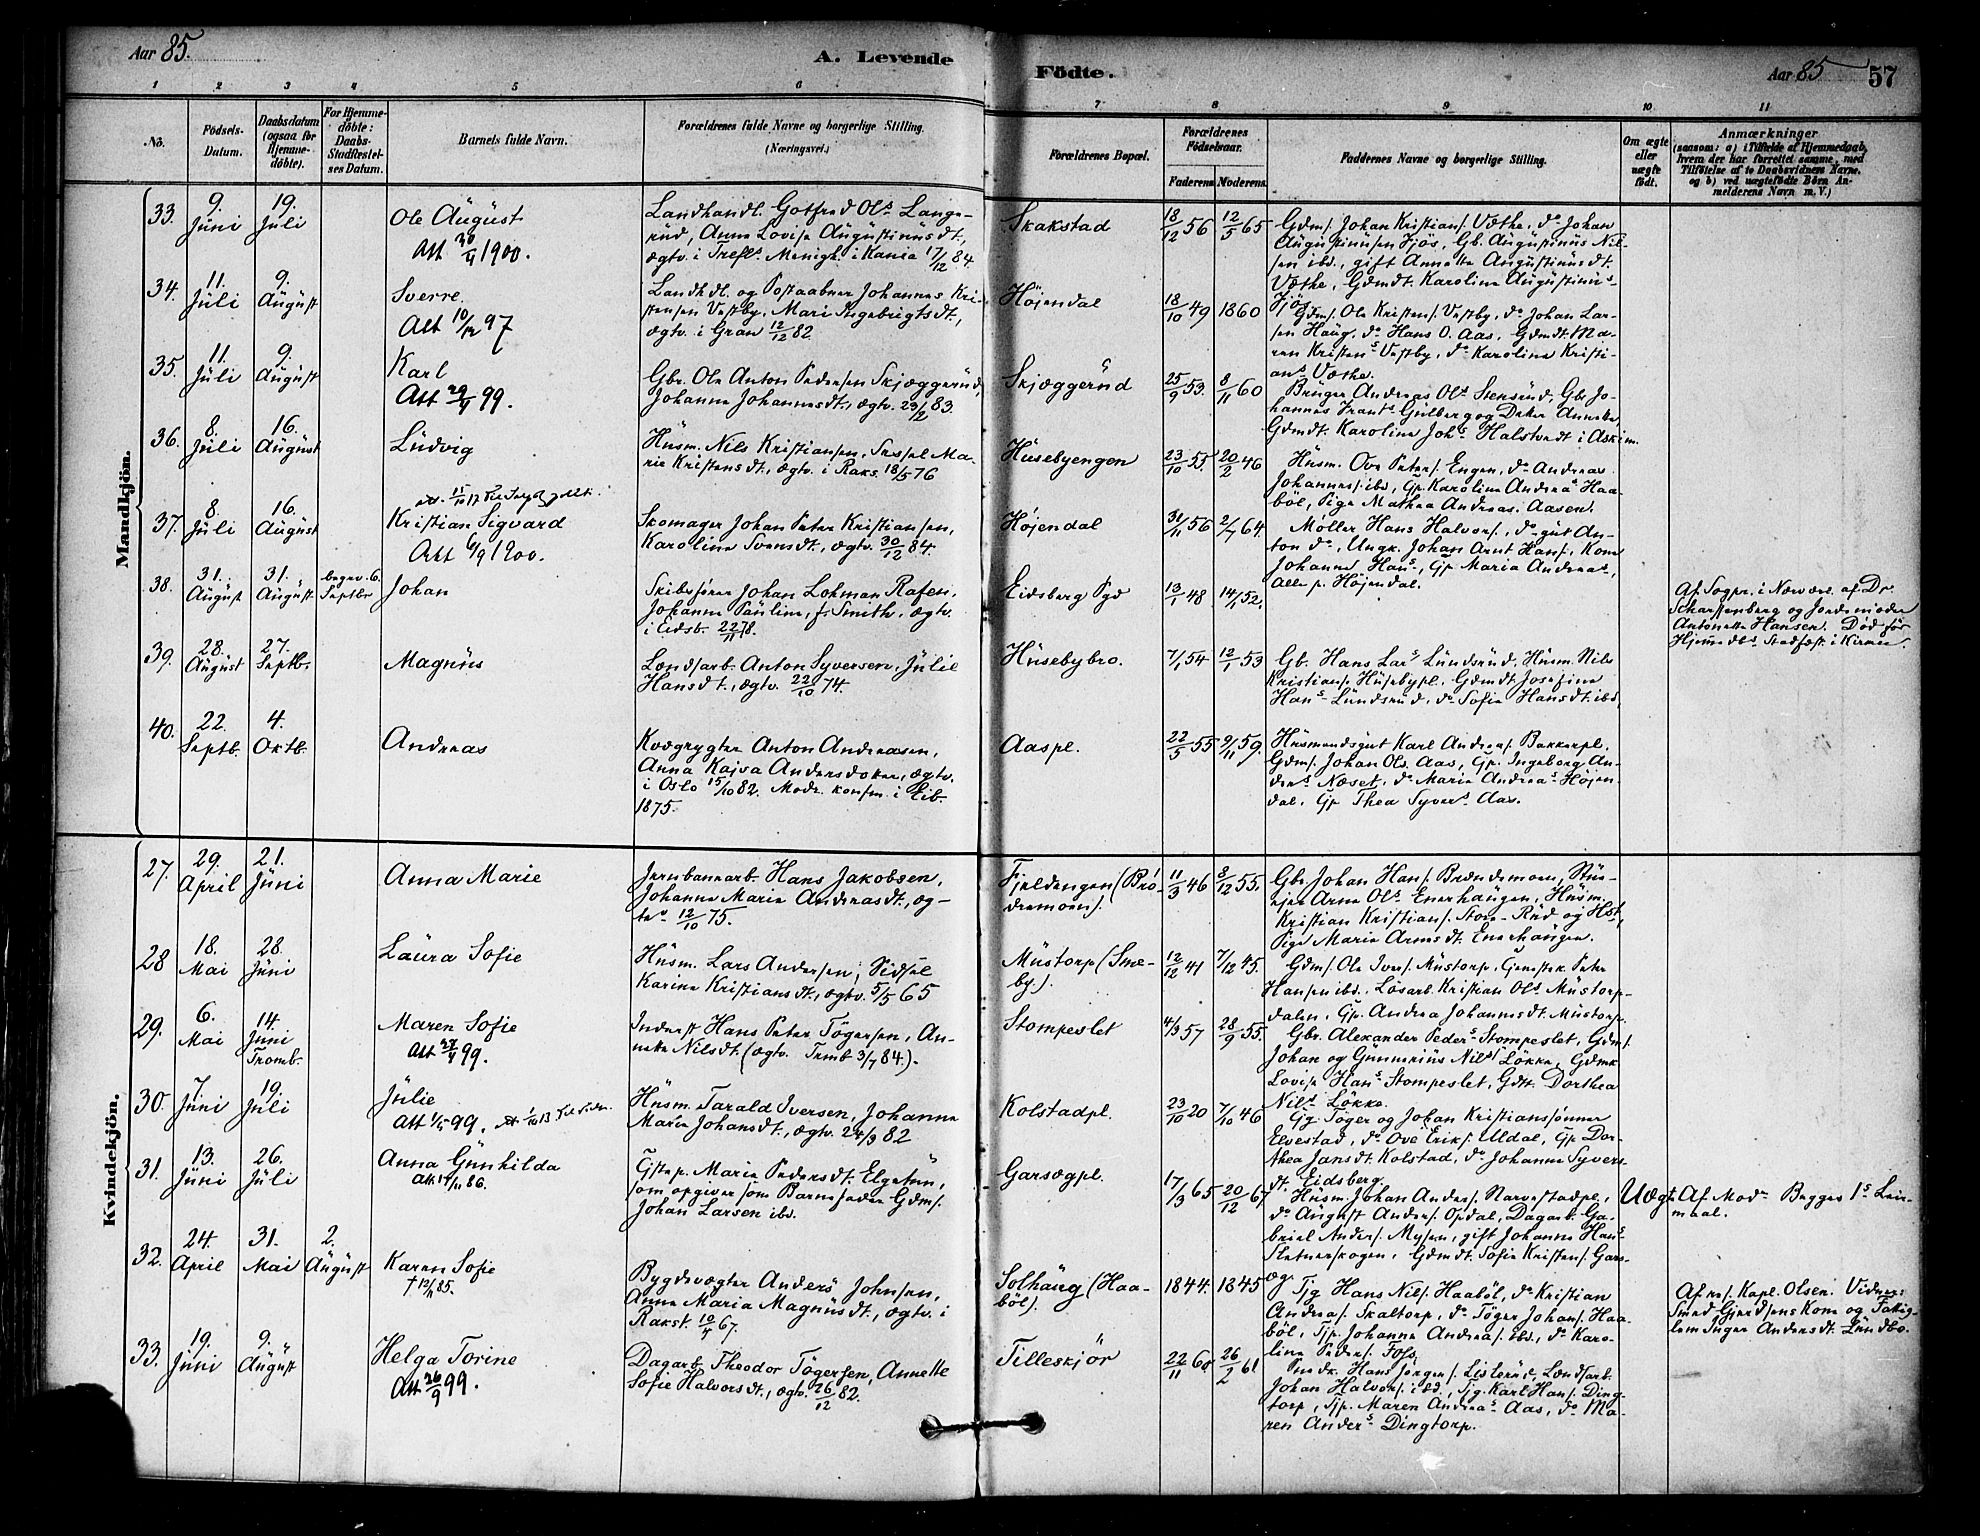 Aar 85.
A. Levende
Födte.
Aar 85
57
1 2 3 4 5 6
7 8 9 10 11
No.
Födsels-
Datum.
Daabsdatum
(ogsaa for
Hjemme-
döbte).
For Hjemme-
döbte:
Daabs-
Stadfæstel-
ses Datum.
Barnets fulde Navn.
Forældrenes fulde Navne og borgerlige Stilling.
(Næringsvei.)
Forældrenes Bopæl.
Forældrenes
Födselsaar.
Faderens Moderens
Faddernes Navne og borgerlige Stilling.
Om ægte
eller
uægte
födt.
Anmærkninger
(saasom: a) i Tilfælde af Hjemmedaab,
hvem der har forrettet samme, med
Tilföielse af to Daabsvidners Navne,
og b) ved uægtefödte Börn An-
melderens Navn m. V.)
Mandkjön.
33. 9. Juni 19. Juli
Ole August
Att 30/4 1900.
Landhandl. Gotfred Ols. Lange-
rud, Anna Lovisa Augustinusdt.,
ægtv. i Trefl. Menigh. i Kania 17/12 84.
Skakstad
18/12 56 12/5 65
Gdm. Johan Kristians. Væthe, do Johan
Augustinusen Fjös, Gb. Augustinus Nil-
sen ibd., gift Annette Augustinusdt.
Væthe, Gdmdt. Karoline Augustinus
Fjös.
34. 11. Juli 9. August
Sverre.
Att 10/12 97
Landhdl. og Postaabner Johannes Kri-
stensen Vestby, Mari Ingebrigtsdt.,
ægtv. i Gran 12/12 82.
Höjendal
18/10 49 1860
Gdm. Ole Kristens. Vestby, do Johan Lar-
sen Haug, do Hans O. Aas, Gdmdt. Ma-
ren Kristens Vestby, do Karoline Kristi-
ans Væthe.
35. 11. Juli 9. August
Karl
Att 29/4 99.
Gbr. Ole Anton Pedersen Skjæggerud,
Johanne Johannesdt., ægtv. 23/2 83.
Skjæggerud
25/9 53. 8/11 60
Bruger Andreas Ols. Stensrud, Gbr Jo-
hannes Frants. Gulberg og Dtr Annette,
Gdmdt. Karoline Johs. Halstvedt i Askim.
36. 8. Juli 16. August
Ludvig
Husm. Nils Kristiansen, Sissel Ma-
rie Kristensdt., ægtv. i Raks. 18/5 76
Husebyengen
23/10 55. 20/2 46
Husm. Ove Peters. Engen, do Andreas
Johannes. ibd, Gp. Karoline Andreas Haa-
böl, Pige Mathea Andreas. Aasen.
37. 8. Juli 16. August
Kristian Sigvard
Att 6/9 1900.
Skomager Johan Peter Kristiansen,
Karoline Svensdt., ægtv. 30/12 84.
Höjendal
30/11 56 2/7 64.
Møller Hans Halvors., do gut An-
ton do, Ungk. Johan Arnt Hans., Kone
Johanne Hans., Gp Maria Andreas.,
alle p. Höjendal.
38. 31. August 31. August
begrv. 6. Septbr
Johan
Skibsförer Johan Lohman Rafen,
Johanne Pauline, f. Smith, ægtv.
i Eidsb. 22/11 78.
Eidsberg Pgd
13/1 48 14/1 52.
Af Sogpr. i Nærvær. af Dr.
Scharffenberg og Jordemoder
Antonette Hansen. Död för
Hjemmedbs. Stadfæst. i Kirken.
39. 28. August 27. Septbr.
Magnus
Løndsarb. Anton Syversen, Julie
Hansdt., ægtv. 22/10 74.
Husebybro.
7/1 54 12/1 53
Gb. Hans Lars Lundsrud, Husm. Nils
Kristians. Husebypl. Gdmdt. Josefine
Hans Lundsrud, do Sofie Hansdt. ibd.
40. 22. Septb. 4. Oktb.
Andreas
Kvægrygter Anton Andreasen,
Anna Kajsa Andersdoter, ægtv.
i Oslo 15/10 82. Modr. konfm. i Eib.
1875.
Aaspl.
22/5 55 9/11 59.
Husmandsgut Karl Anders. Bakkerpl.,
Gdm. Johan Ols. Aas, Gp. Ingeborg An-
ders. Næset, do Marie Andreas Höjen-
dal, Gp Thea Syvers. Aas.
Kvindekjön.
27. 29. April 21. Juni
Anna Marie
Jernbanearb. Hans Jakobsen,
Johanne Marie Andreasdt., æg-
tev. 12/10 75.
Fjeldengen (Brö-
dremoen).
11/3 46 8/12 55.
Gbr Johan Hans. Brændemoen,
Arne Ols. Enerhaugen, Husm.
Kristian Kristians. Store-Rud og Hst,
Pige Marie Arnesdt. Enerhaugen.
28 18. Mai 28. Juni
Laura Sofie
Husm. Lars Andersen, Sidsel
Karine Kristiansdt., ægtv. 5/5 65
Mustorp (Sme-
by).
12/12 41 7/12 45.
Gdm. Ole Ivers. Mustorp, Peter
Hansen ibd., Lösarb. Kristian Ols. Mustorp-
dalen, Gp. Andrea Johannesdt. Mustorp.
29. 6. Mai 14. Juni Tromb.
Maren Sofie
Att 27/4 99.
Inderst Hans Peter Tögersen, An-
nette Nilsdt. (ægtv. Tromb 3/7 84.).
Stompeslet
4/3 57 28/9 55.
Gbr. Alexander Peders. Stompeslet, Gdm.
Johan og Gunnerius Nils. Løkke, Gdmk
Lovise Hans Stompeslet, Gdt. Dorthea
Nils. Løkke.
30. 7. Juni 19. Juli
Julie
Husm. Tarald Iversen, Johanne
Marie Johansdt., ægtv. 24/3 82
Kolstadpl.
23/10 20 7/10 46
Gg Töger og Johan Kristianssönner
Elvestad, do Ove Eriks. Uldal, Gp Dor-
thea Jansdt. Kolstad, do Johanne Syvers-
dt. Eidsberg.
31. 13. Juni 26. Juli
Anna Gunhilda
Tjstep. Marie Pedersdt. Elgetun,
som opgiver som Barnefader Gdms.
Johan Larsen ibd.
Garsægpl.
17/3 65 20/12 67
Husm. Johan Anders. Narvestadpl.,
do August Anders. Opdal, Dagarb. Ga-
briel Anders. Mysen, gift Johanne Hans
Sletnerskogen, Gdmdt. Sofie Kristens. Gars-
æg.
Uægt.
Af Modr. Begges 1s Leier-
maal.
32. 24. April 31. Mai 2. August
Karen Sofie
† 12/11 85.
Bygdevægter Anders Johnsen,
Anne Marie Magnusdt., ægtv. i
Rakst. 10/4 67.
Solhaug (Haa-
böl).
1844. 1845
Tjg Hans Nils. Haaböl, do Kristian
Andreas. Skaltorp, do Töger Johans. Haa-
böl, Tjp. Johanne Andreas. Ibd., do Karo-
line Peders. Foss.
Af res. Kapl. Olsen. Vidner:
Smed Gjerdsens Kone og Fattig-
lem Inger Andersdt. Lundbo.
33. 19. Juni 9. August
Helga Torine
Att 26/9 99.
Dagarb. Theodor Tögersen, Annette
Sofie Halvorsdt., ægtv. 26/12 82.
Tilleskjör
22/11 60. 26/2 61
Hans Jörgen. Listerud, Løndsarb.
Johan Halvors. ibd., Tjg. Karl Hans. Ding-
torp, Tjp. Maren Andreas Aas, do Ma-
ren Anders Dingtorp.